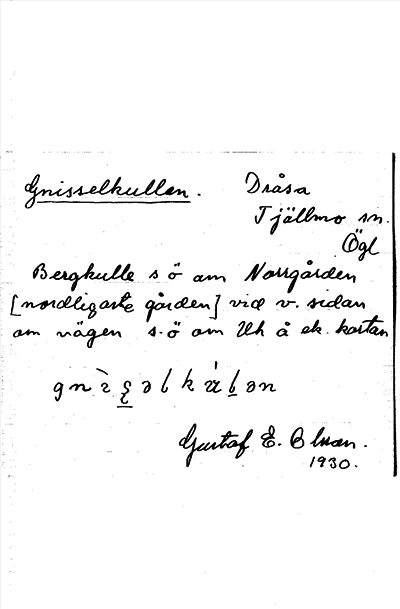 Gnisselkullen. Dråsa
Tjällmo sn.
Ögl
Bergkulle s ö om Norrgården
[nordligaste gården] vid v. sidan
om vägen s.ö om Uh å ek. kartan
Gustaf E. Olsson.
1930.